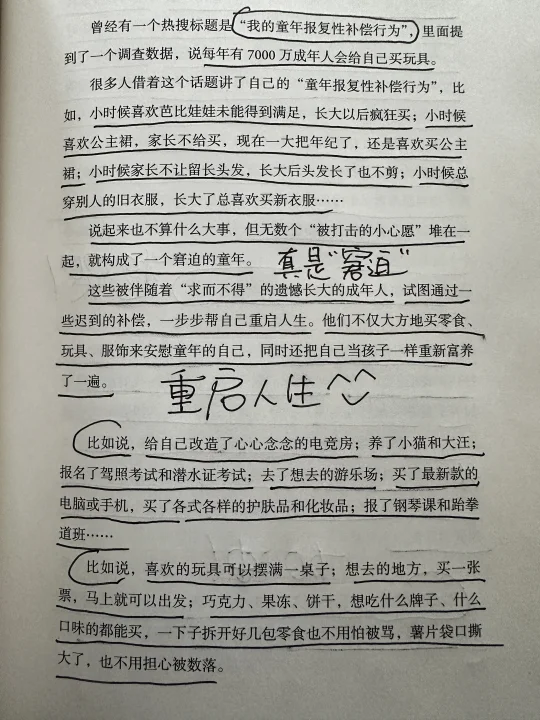 曾经有一个热搜标题是“我的童年报复性补偿行为”，里面提
到了一个调查数据，说每年有 7000 万成年人会给自己买玩具。
很多人借着这个话题讲了自己的“童年报复性补偿行为”，比
如，小时候喜欢芭比娃娃未能得到满足，长大以后疯狂买；小时候
喜欢公主裙，家长不给买，现在一大把年纪了，还是喜欢买公主
裙；小时候家长不让留长头发，长大后头发长了也不剪；小时候总
穿别人的旧衣服，长大了总喜欢买新衣服……
说起来也不算什么大事，但无数个“被打击的小心愿”堆在一
起，就构成了一个窘迫的童年。 真是“窘迫”
这些被伴随着“求而不得”的遗憾长大的成年人，试图通过一
些迟到的补偿，一步步帮自己重启人生。他们不仅大方地买零食、
玩具、服饰来安慰童年的自己，同时还把自己当孩子一样重新富养
了一遍。 重启人生^^
比如说，给自己改造了心心念念的电竞房；养了小猫和大汪；
报名了驾照考试和潜水证考试；去了想去的游乐场；买了最新款的
电脑或手机，买了各式各样的护肤品和化妆品；报了钢琴课和跆拳
道班……
比如说，喜欢的玩具可以摆满一桌子；想去的地方，买一张
票，马上就可以出发；巧克力、果冻、饼干，想吃什么牌子、什么
口味的都能买，一下子拆开好几包零食也不用怕被骂，薯片袋口撕
大了，也不用担心被数落。